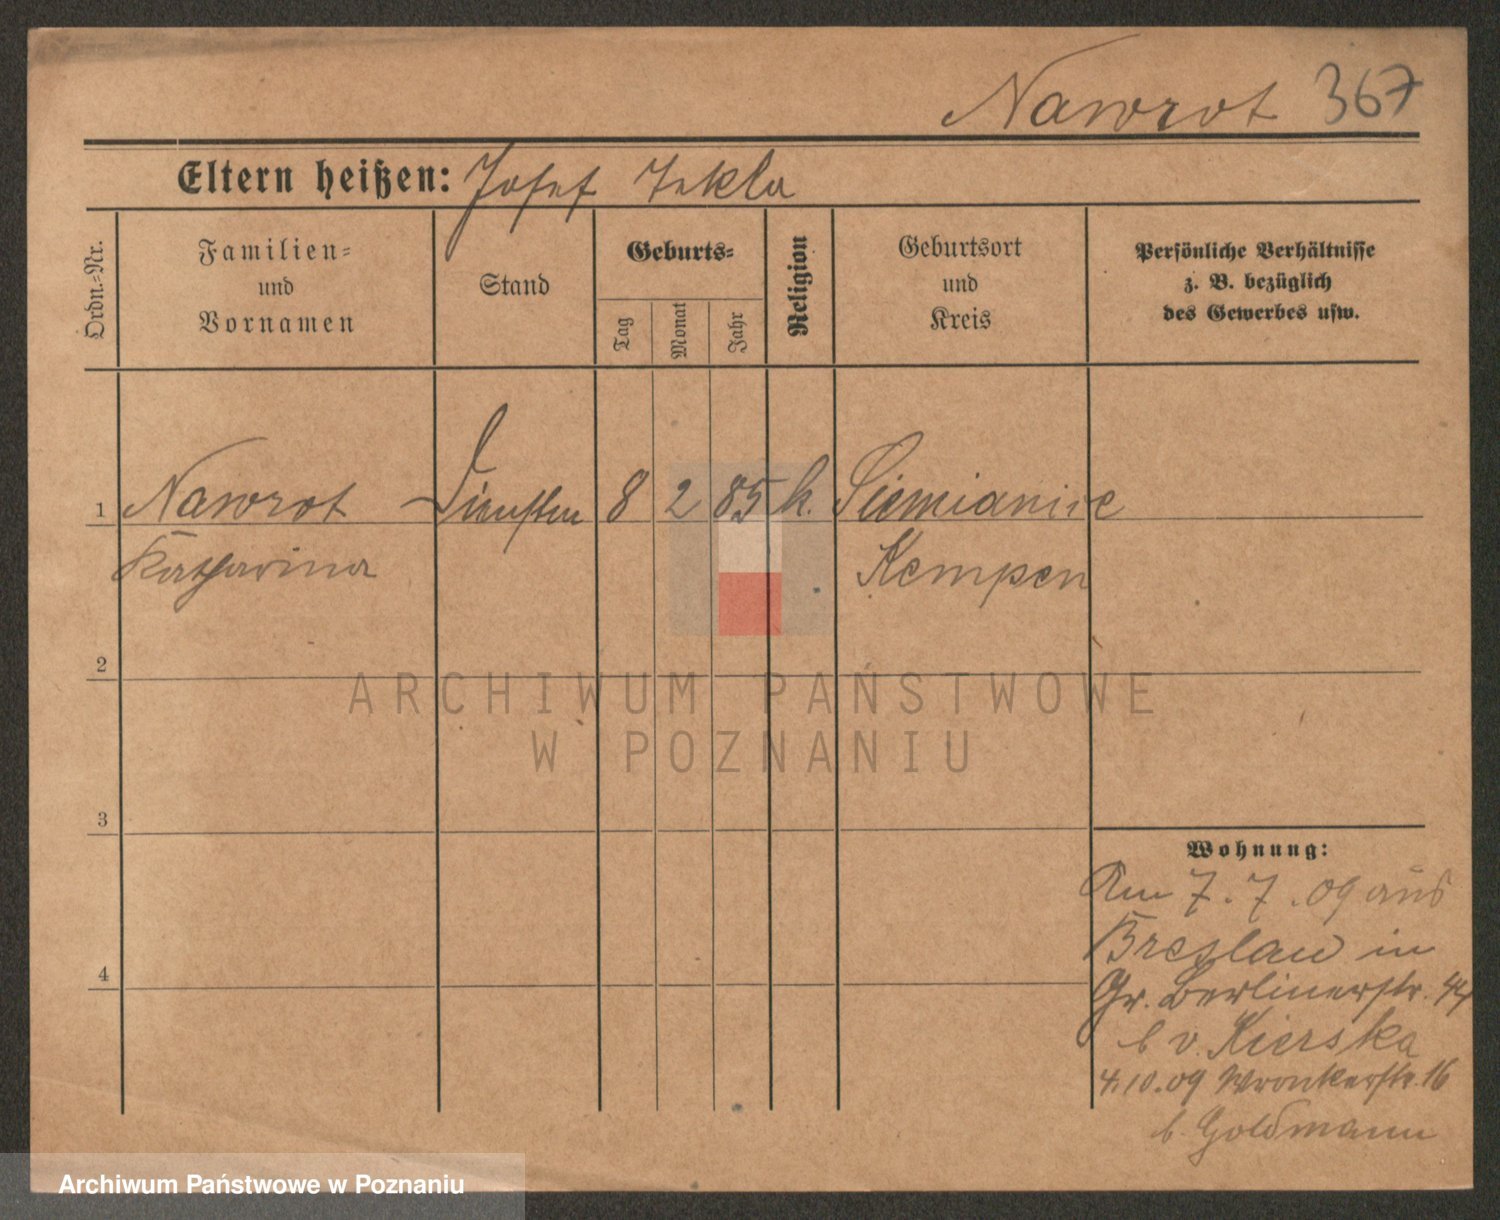 Nawrot 367
Eltern heißen: Josef Tekla
Ordn.-Nr.
Familien-
und
Vornamen
Stand
Geburts-
Tag
Monat
Jahr
Religion
Geburtsort
und
Kreis
Persönliche Verhältnisse
z. B. bezüglich
des Gewerbes usw.
1 Nawrot 8 2 85 k. Siemianice
Katharina Kempen
2
3
4
Wohnung:
Am 7.7.09 aus
Breslau in
Gr. Berlinerstr. 44
b v. Kierska
4.10.09 Wronkerstr. 16
b. Goldmann
ARCHIWUM PAŃSTWOWE
W POZNANIU
Archiwum Państwowe w Poznaniu